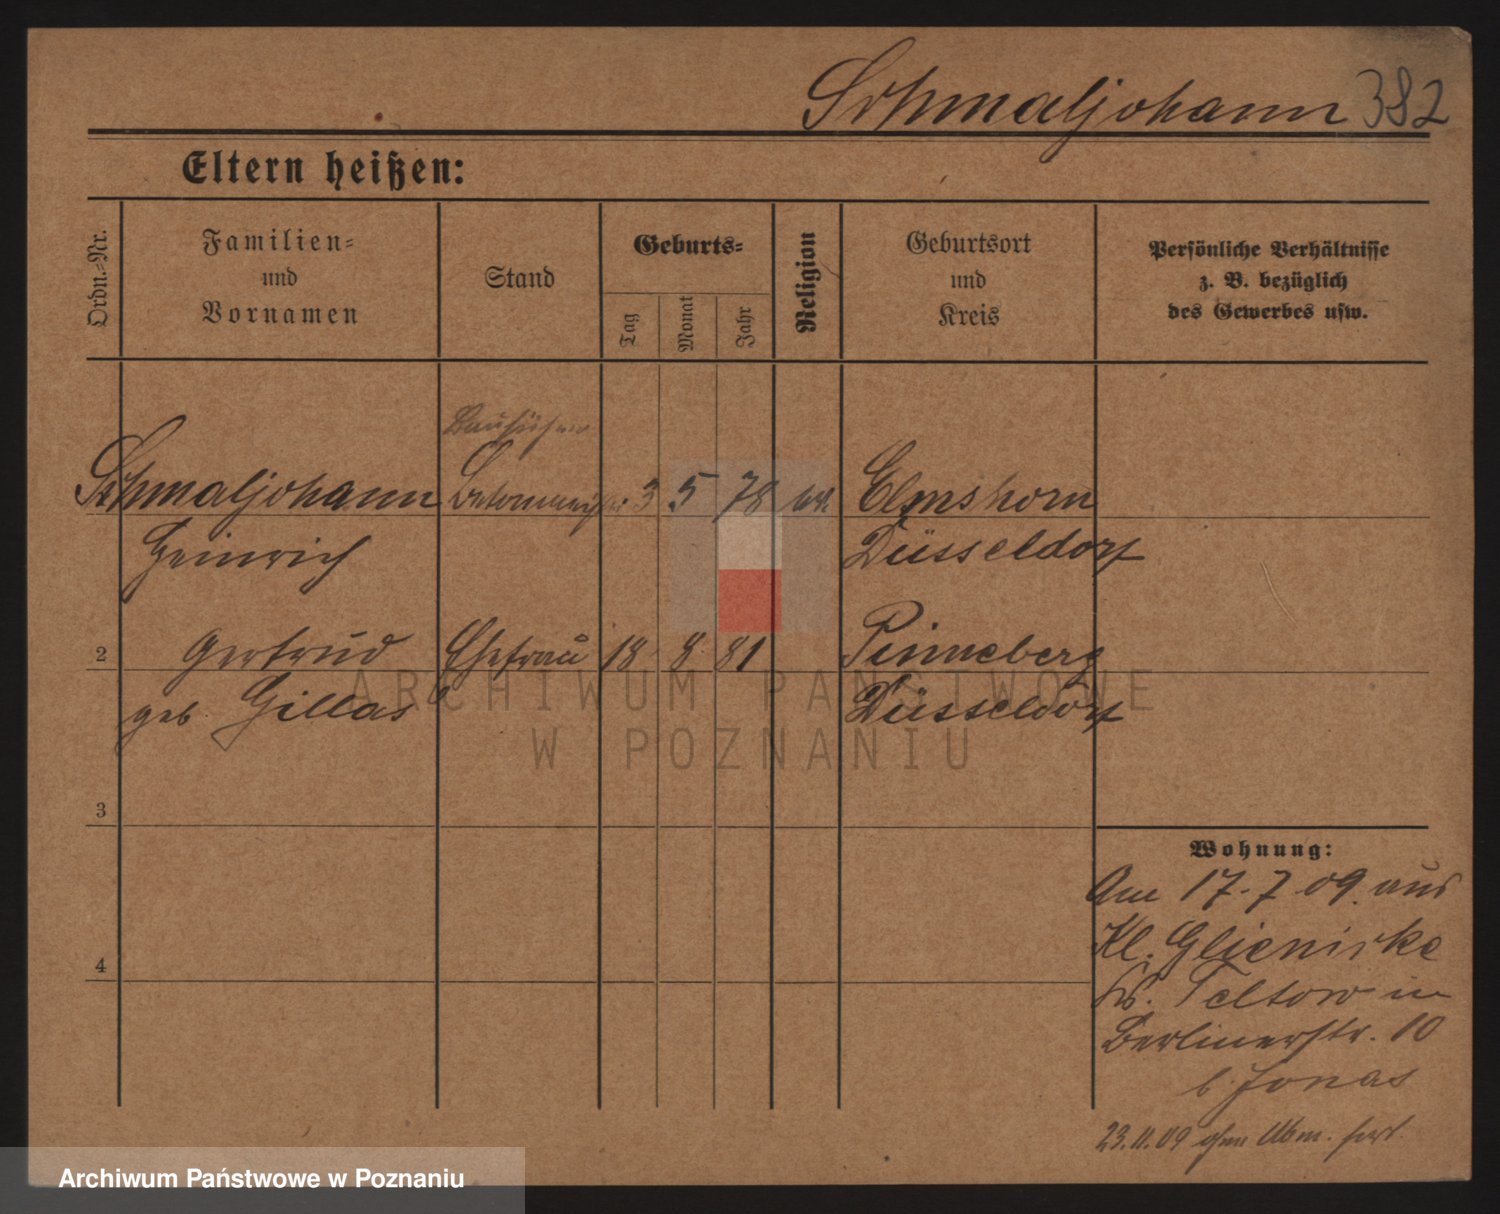 Schmaljohann 382
Eltern heißen:
Ordn.-Nr.
Familien-
und
Vornamen
Stand
Geburts-
Tag
Monat
Jahr
Religion
Geburtsort
und
Kreis
Persönliche Verhältnisse
z. B. bezüglich
des Gewerbes usw.
Bauführer
Schmaljohann 3 5 78 Elmshorn
Heinrich Düsseldorf
2 Gertrud Ehefrau 18 8 81 Pinneberg
geb Gillas Düsseldorf
ARCHIWUM PAŃSTWOWE
W POZNANIU
3
Wohnung:
Am 17.7 09. aus
Kl. Glienicke
4
Teltow in
Berlinerstr. 10
b. Jonas
23.11.09 ohne Abm. fort.
Archiwum Państwowe w Poznaniu